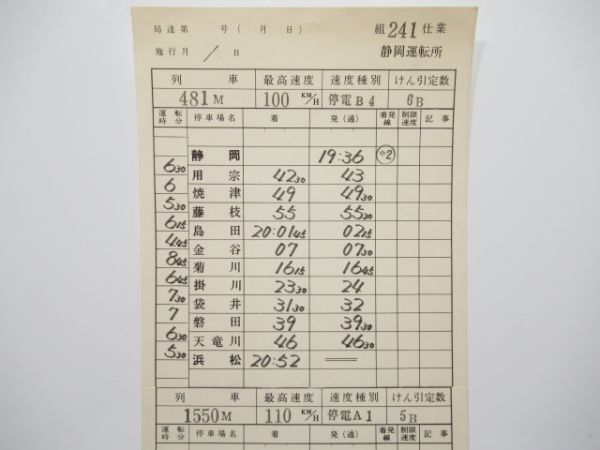 局達第 号 ( 月 日 ) 組 241 仕業
施行月 / 日 静岡運転所
列 車 最高速度 速度種別 けん引定数
481M 100 KM/H 停電B4 6B
運転時分 停車場名 着 発(通) 着発線 制限速度 記事
静岡 19:36 中2
6 30
用宗 42 30 43
6
焼津 49 49 30
5 30
藤枝 55 55 30
6 15
島田 20:01 45 02 15
4 45
金谷 07 07 30
8 45
菊川 16 15 16 45
6 45
掛川 23 30 24
7 30
袋井 31 30 32
7
磐田 39 39 30
6 30
天竜川 46 46 30
5 30
浜松 20:52
列 車 最高速度 速度種別 けん引定数
1550M 110 KM/H 停電A1 5B
運転時分 停車場名 着 発(通) 着発線 制限速度 記事